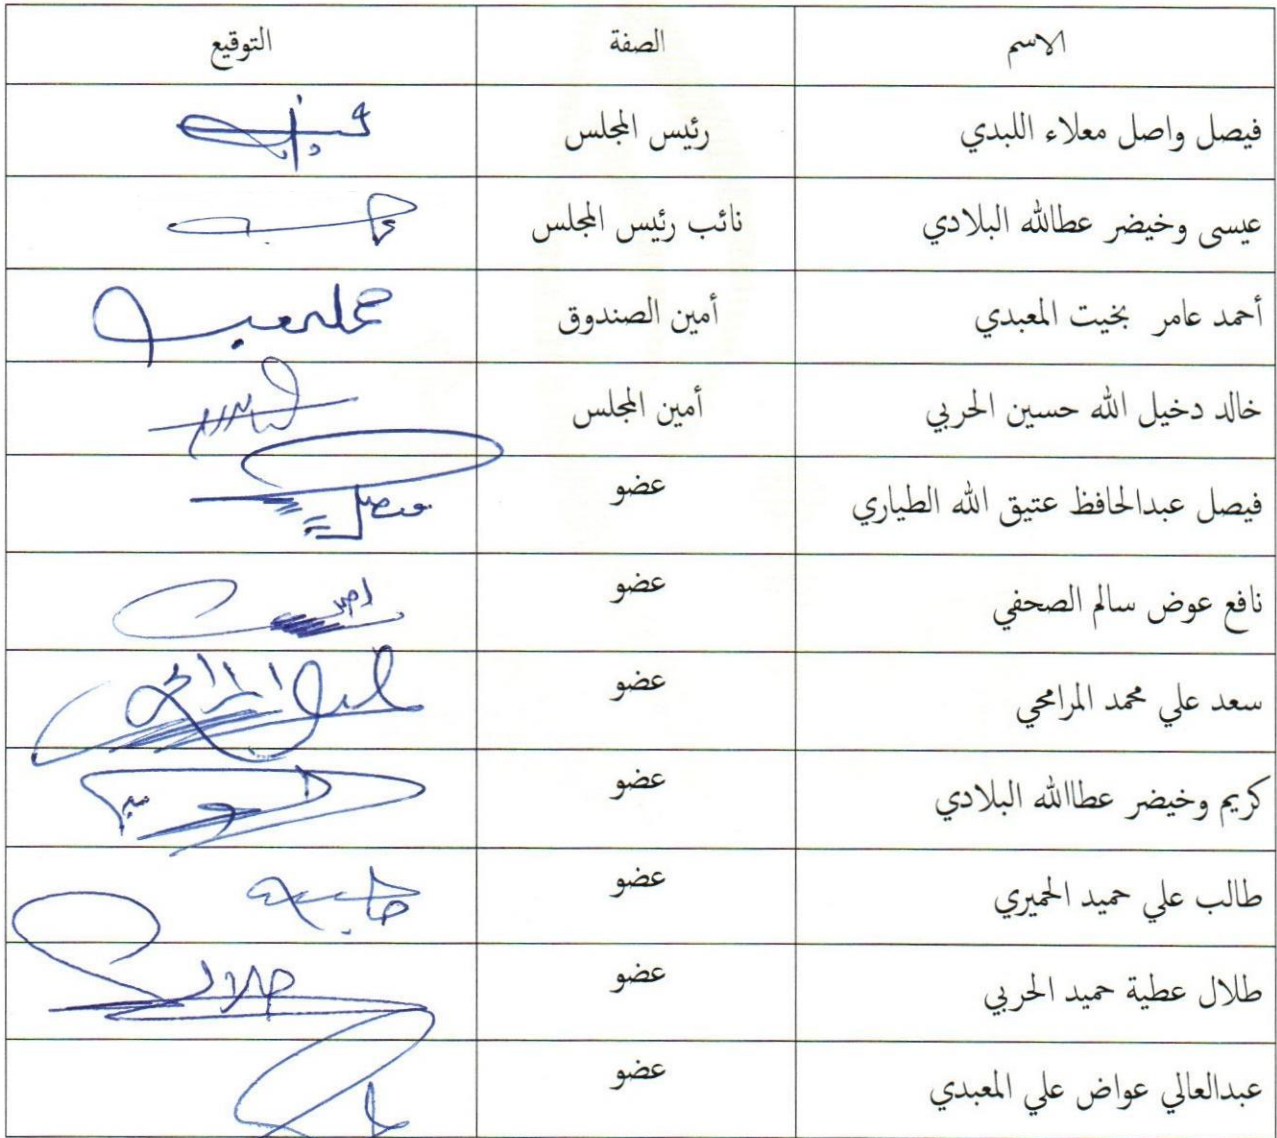 الاسم الصفة التوقيع
فيصل واصل معلاء اللبدي رئيس المجلس
عيسى وخيضر عطالله البلادي نائب رئيس المجلس
أحمد عامر بخيت المعبدي أمين الصندوق
خالد دخيل الله حسين الحربي أمين المجلس
فيصل عبدالحافظ عتيق الله الطياري عضو
نافع عوض سالم الصحفي عضو
سعد علي محمد المرامحي عضو
كريم وخيضر عطاالله البلادي عضو
طالب علي حميد الحميري عضو
طلال عطية حميد الحربي عضو طلال
عبدالعالي عواض علي المعبدي عضو